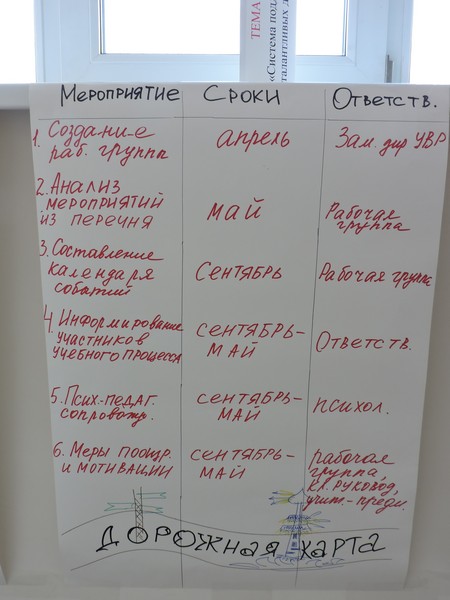 ТЕМА
«Система под
талантливых д
Мероприятие Сроки Ответств.
1. Создани-е апрель Зам. дир УВР
раб. группы
2. Анализ
мероприятий май Рабочая
из перечня группа
3. Составление
календаря Сентябрь Рабочая группа
событий
4. Информирование сентябрь-
участников май Ответств.
учебного процесса
5. Псих.-педаг. сентябрь- психол.
сопровожд. май
6. Меры поощр. сентябрь- рабочая
и мотивации май группа
кл. руковод,
учит.-предм.
ДОРОЖНАЯ КАРТА